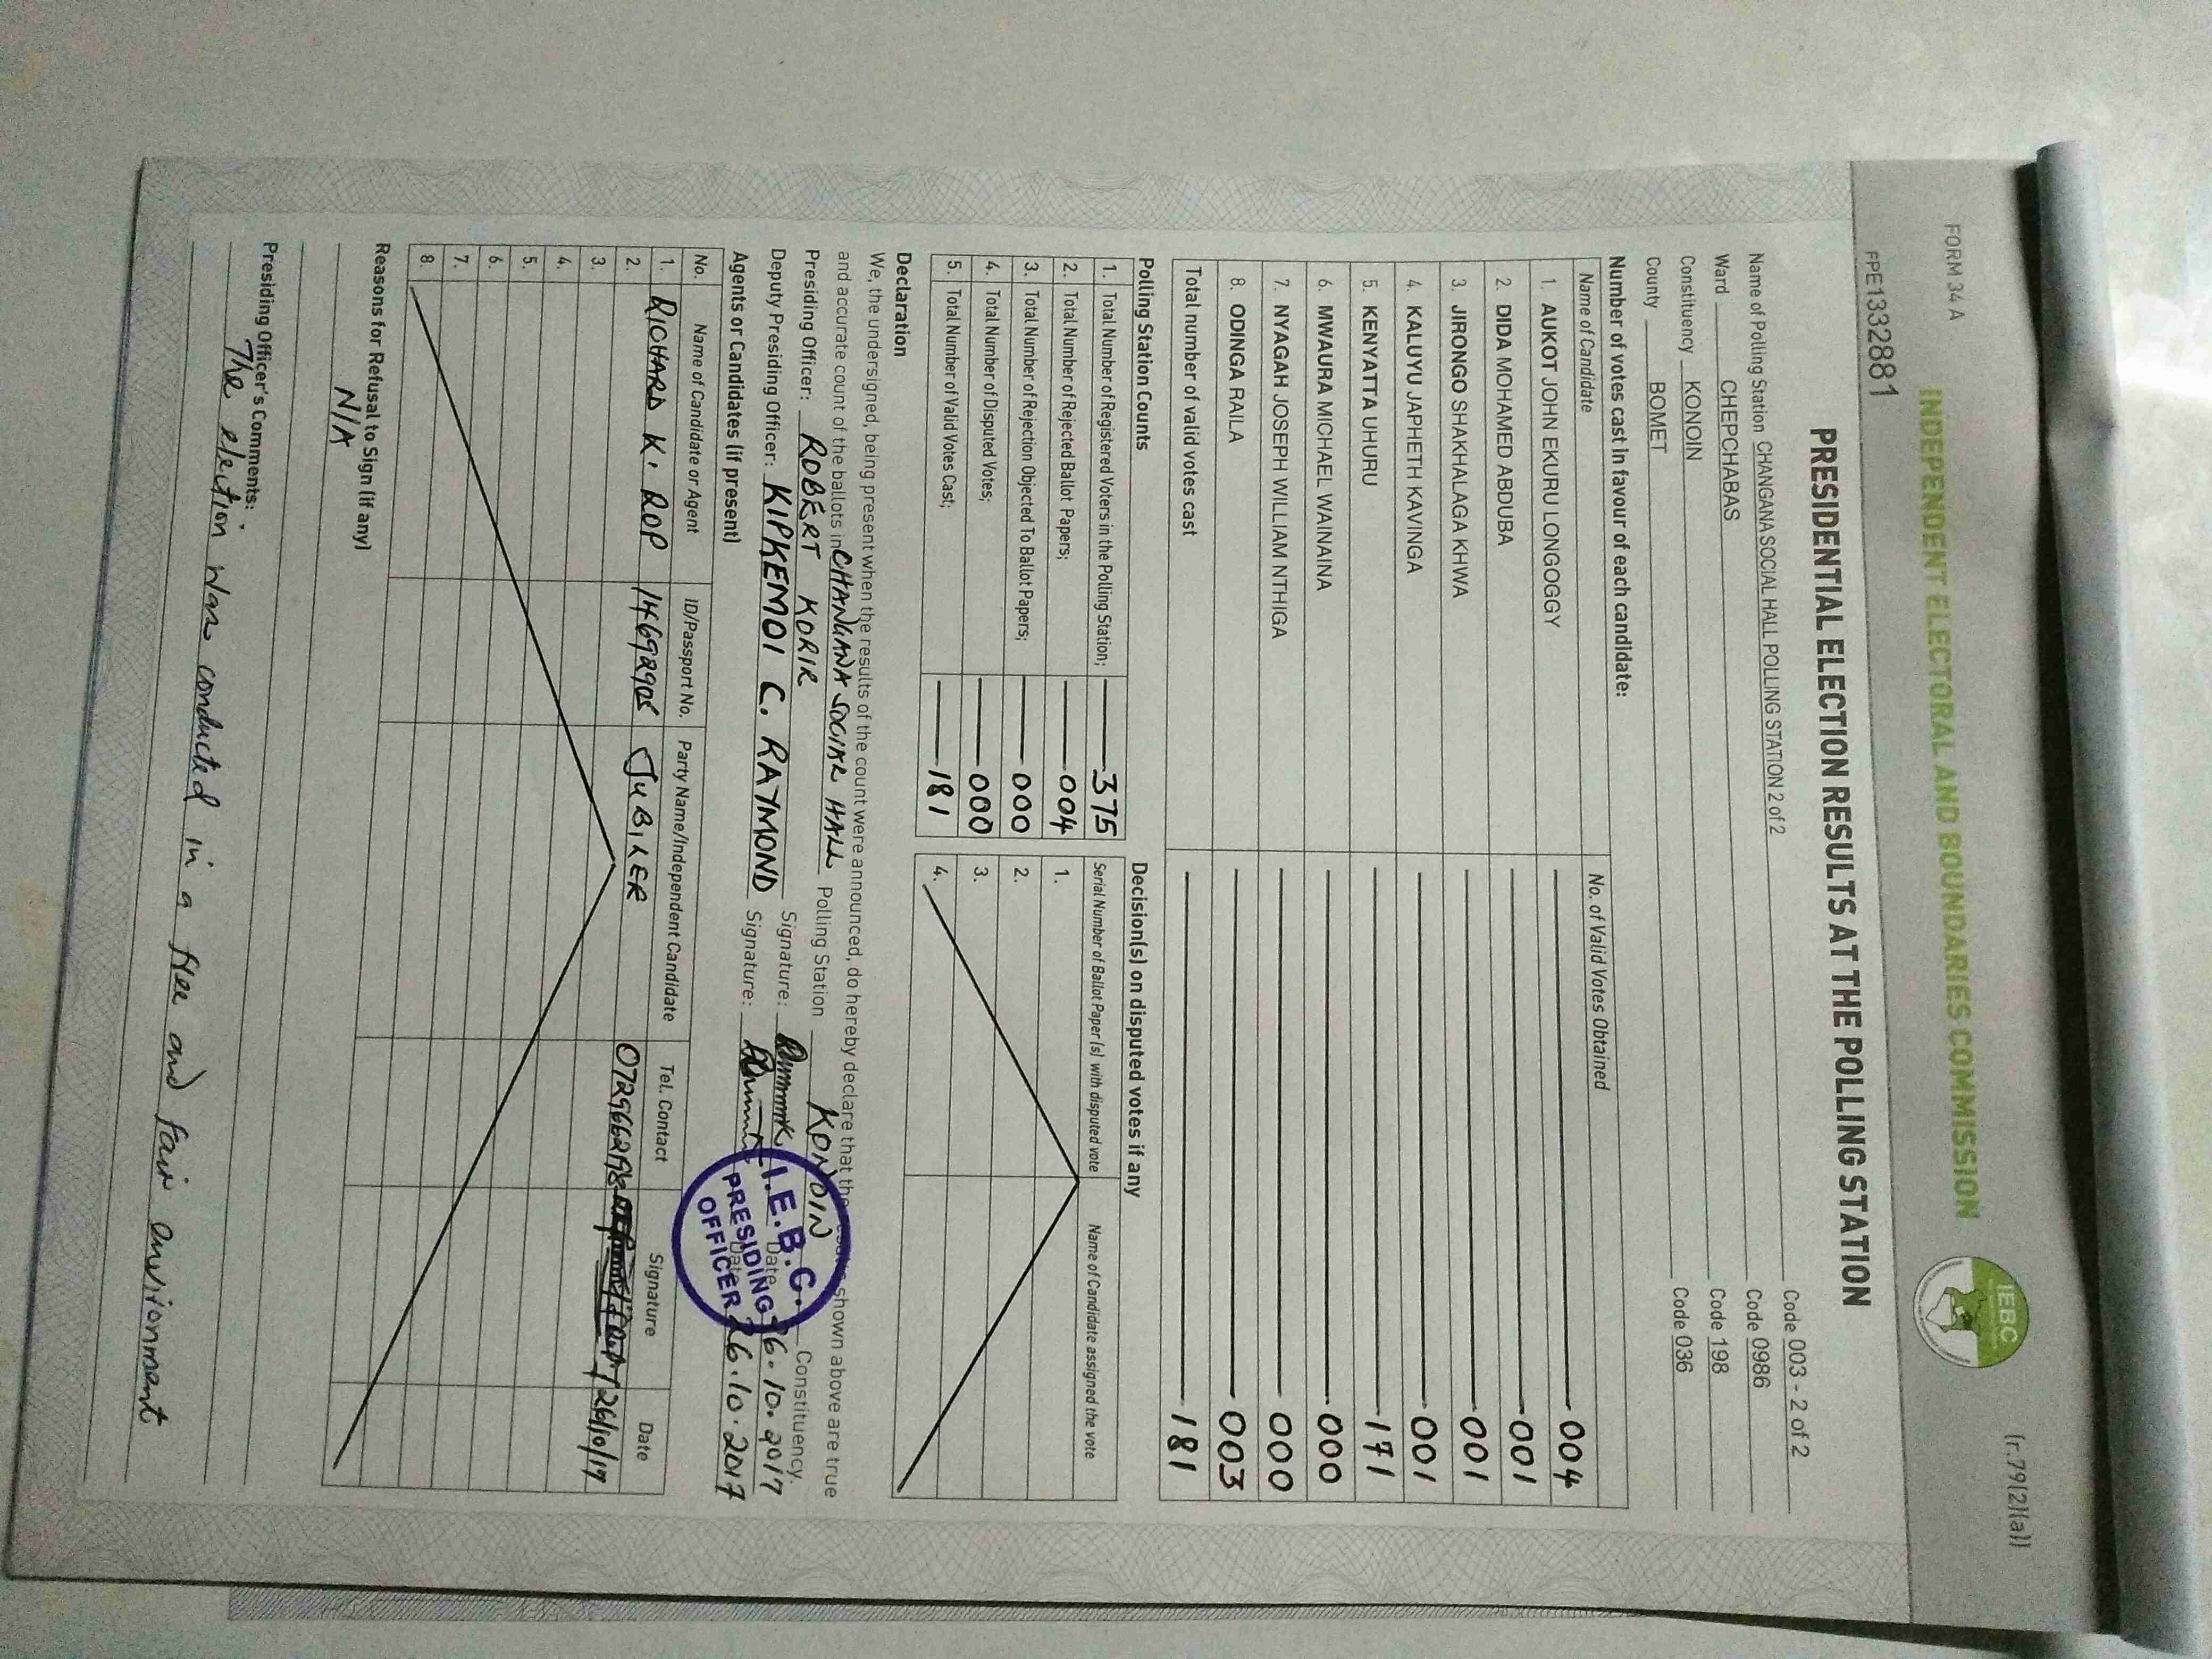 FORM 34 A
(r.79(2)(a))
INDEPENDENT ELECTORAL AND BOUNDARIES COMMISSION
IEBC
FPE1332881
PRESIDENTIAL ELECTION RESULTS AT THE POLLING STATION
Name of Polling Station CHANGANA SOCIAL HALL POLLING STATION 2 of 2 Code 003 - 2 of 2
Ward CHEPCHABAS Code 0986
Constituency KONOIN Code 198
County BOMET Code 036
Number of votes cast in favour of each candidate:
Name of Candidate No. of Valid Votes Obtained
1. AUKOT JOHN EKURU LONGOGGY 004
2. DIDA MOHAMED ABDUBA 001
3. JIRONGO SHAKHALAGA KHWA 001
4. KALUYU JAPHETH KAVINGA 001
5. KENYATTA UHURU 171
6. MWAURA MICHAEL WAINAINA 000
7. NYAGAH JOSEPH WILLIAM NTHIGA 000
8. ODINGA RAILA 003
Total number of valid votes cast 181
Polling Station Counts
1. Total Number of Registered Voters in the Polling Station; 375
2. Total Number of Rejected Ballot Papers; 004
3. Total Number of Rejection Objected To Ballot Papers; 000
4. Total Number of Disputed Votes; 000
5. Total Number of Valid Votes Cast; 181
Decision(s) on disputed votes if any
Serial Number of Ballot Paper (s) with disputed vote Name of Candidate assigned the vote
1.
2.
3.
4.
Declaration
We, the undersigned, being present when the results of the count were announced, do hereby declare that the results shown above are true
and accurate count of the ballots in CHANGANA SOCIAL HALL Polling Station KONOIN Constituency.
Presiding Officer: ROBERT KORIR Signature: Date 26.10.2017
Deputy Presiding Officer: KIPKEMOI C. RAYMOND Signature: Date 26.10.2017
I.E.B.C.
PRESIDING
OFFICER
Agents or Candidates (if present)
No. Name of Candidate or Agent ID/Passport No. Party Name/Independent Candidate Tel. Contact Signature Date
1. RICHARD K. ROP 14692905 JUBILEE 26/10/17
2.
3.
4.
5.
6.
7.
8.
Reasons for Refusal to Sign (if any)
N/A
Presiding Officer's Comments:
The election was conducted in a free and fair environment